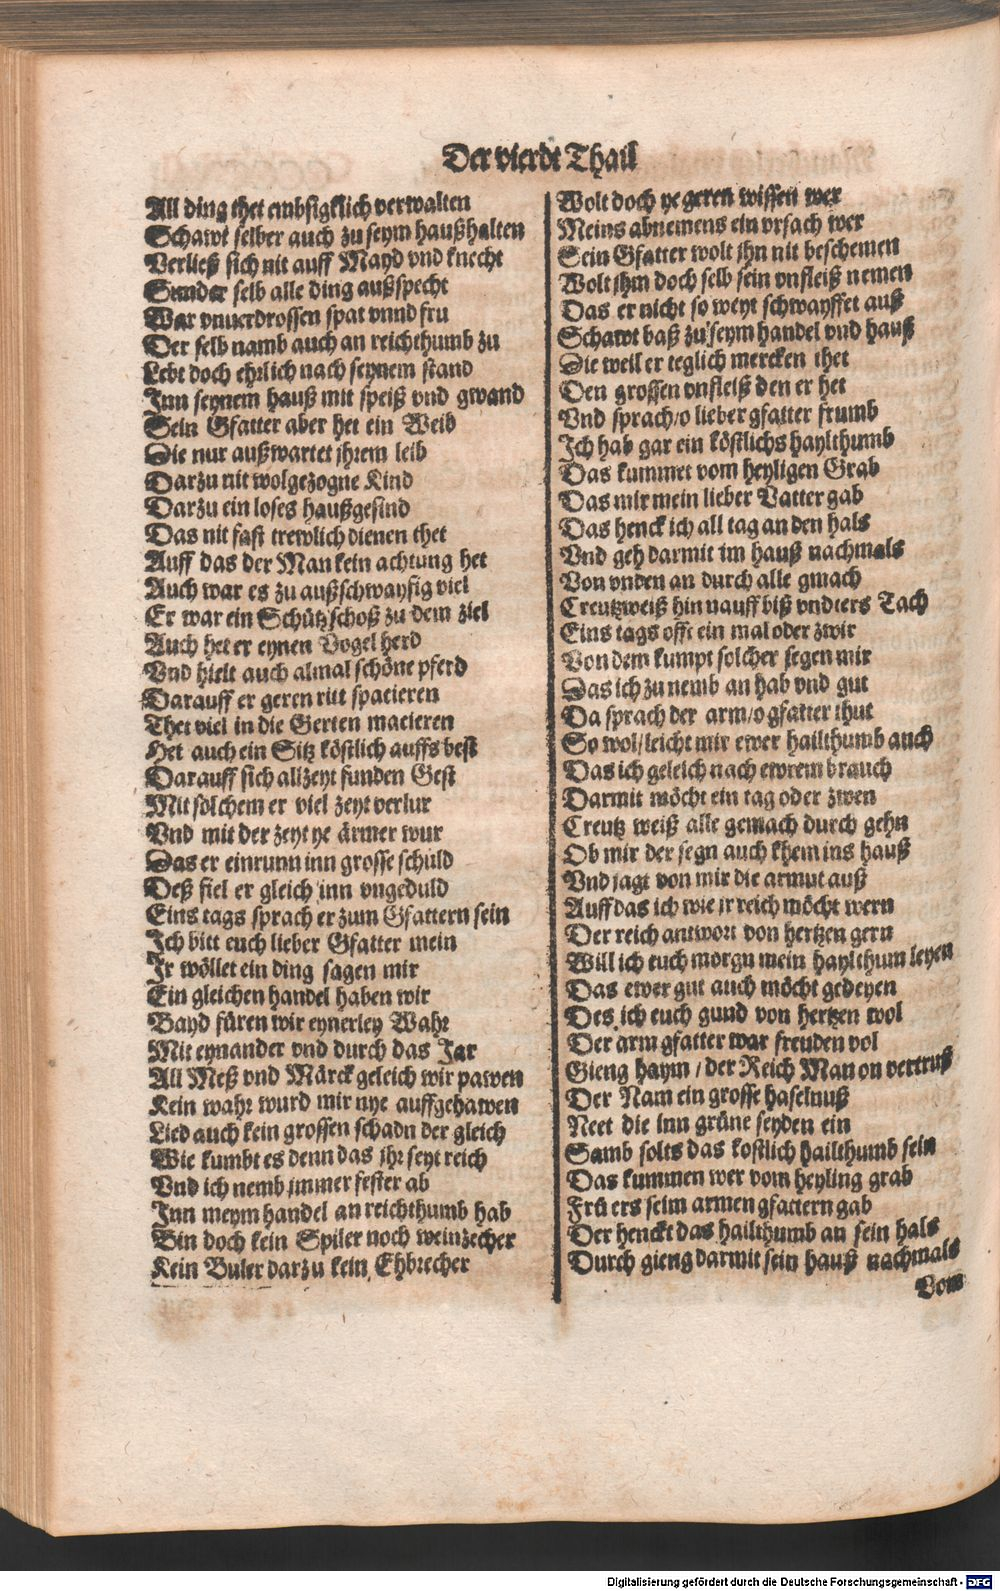 Der vierdt Thail
All ding thet embsigklich verwalten
Schawt selber auch zu seym haußhalten
Verließ sich nit auff Mayd vnd knecht
Sunder selb alle ding außspecht
War vnuerdrossen spat vnnd fru
Der selb namb auch an reichthumb zu
Lebt doch ehrlich nach seynem stand
Inn seynem hauß mit speiß vnd gwand
Sein Gfatter aber het ein Weib
Die nur außwartet jhrem leib
Darzu nit wolgezogne Kind
Darzu ein loses haußgesind
Das nit fast trewlich dienen thet
Auff das der Man kein achtung het
Auch war es zu außschwaysig viel
Er war ein Schütz schoß zu dem ziel
Auch het er eynen Vogel herd
Vnd hielt auch almal schöne pferd
Darauff er geren ritt spacieren
Thet viel in die Gerten macieren
Het auch ein Sitz köstlich auffs best
Darauff sich allzeyt funden Gest
Mit solchem er viel zeyt verlur
Vnd mit der zeyt ye ärmer wur
Das er einrunn inn grosse schuld
Deß fiel er gleich inn vngeduld
Eins tags sprach er zum Gfattern sein
Ich bitt euch lieber Gfatter mein
Ir wöllet ein ding sagen mir
Ein gleichen handel haben wir
Bayd füren wir eynerley Wahr
Mit eynander vnd durch das Jar
All Meß vnd Märck geleich wir pawen
Kein wahr wurd mir nye auffgehawen
Lied auch kein grossen schadn der gleich
Wie kumbt es denn das jhr seyt reich
Vnd ich nemb jmmer fester ab
Inn meym handel an reichthumb hab
Bin doch kein Spiler noch weinzecher
Kein Buler darzu kein Ehbrecher
Wolt doch ye geren wissen wer
Meins abnemens ein vrsach wer
Sein Gfatter wolt jhn nit beschemen
Wolt jhm doch selb sein vnfleiß nemen
Das er nicht so weyt schwayffet auß
Schawt baß zu seym handel vnd hauß
Die weil er teglich mercken thet
Den grossen vnfleiß den er het
Vnd sprach/o lieber gfatter frumb
Ich hab gar ein köstlichs haylthumb
Das kummet vom heyligen Grab
Das mir mein lieber Vatter gab
Das henck ich all tag an den hals
Vnd geh darmit im hauß nachmals
Von vnden an durch alle gmach
Creutzweiß hin nauff biß vnders Tach
Eins tags offt ein mal oder zwir
Von dem kumpt solcher segen mir
Das ich zu nemb an hab vnd gut
Da sprach der arm/o gfatter thut
So wol/leicht mir ewer hailthumb auch
Das ich geleich nach ewrem brauch
Darmit möcht ein tag oder zwen
Creutz weiß alle gemach durch gehn
Ob mir der segn auch khem ins hauß
Vnd jagt von mir die armut auß
Auff das ich wie jr reich möcht wern
Der reich antwort von hertzen gern
Will ich euch morgn mein haylthum leyen
Das ewer gut auch möcht gedeyen
Des ich euch gund von hertzen wol
Der arm gfatter war freuden vol
Gieng haym / der Reich Man on vertruß
Der Nam ein grosse haselnuß
Neet die inn grüne seyden ein
Samb solts das kostlich hailthumb sein
Das kummen wer vom heyling grab
Frü ers seim armen gfattern gab
Der henckt das hailthumb an sein hals
Durch gieng darmit sein hauß nachmals
Vom
Digitalisierung gefördert durch die Deutsche Forschungsgemeinschaft - DFG